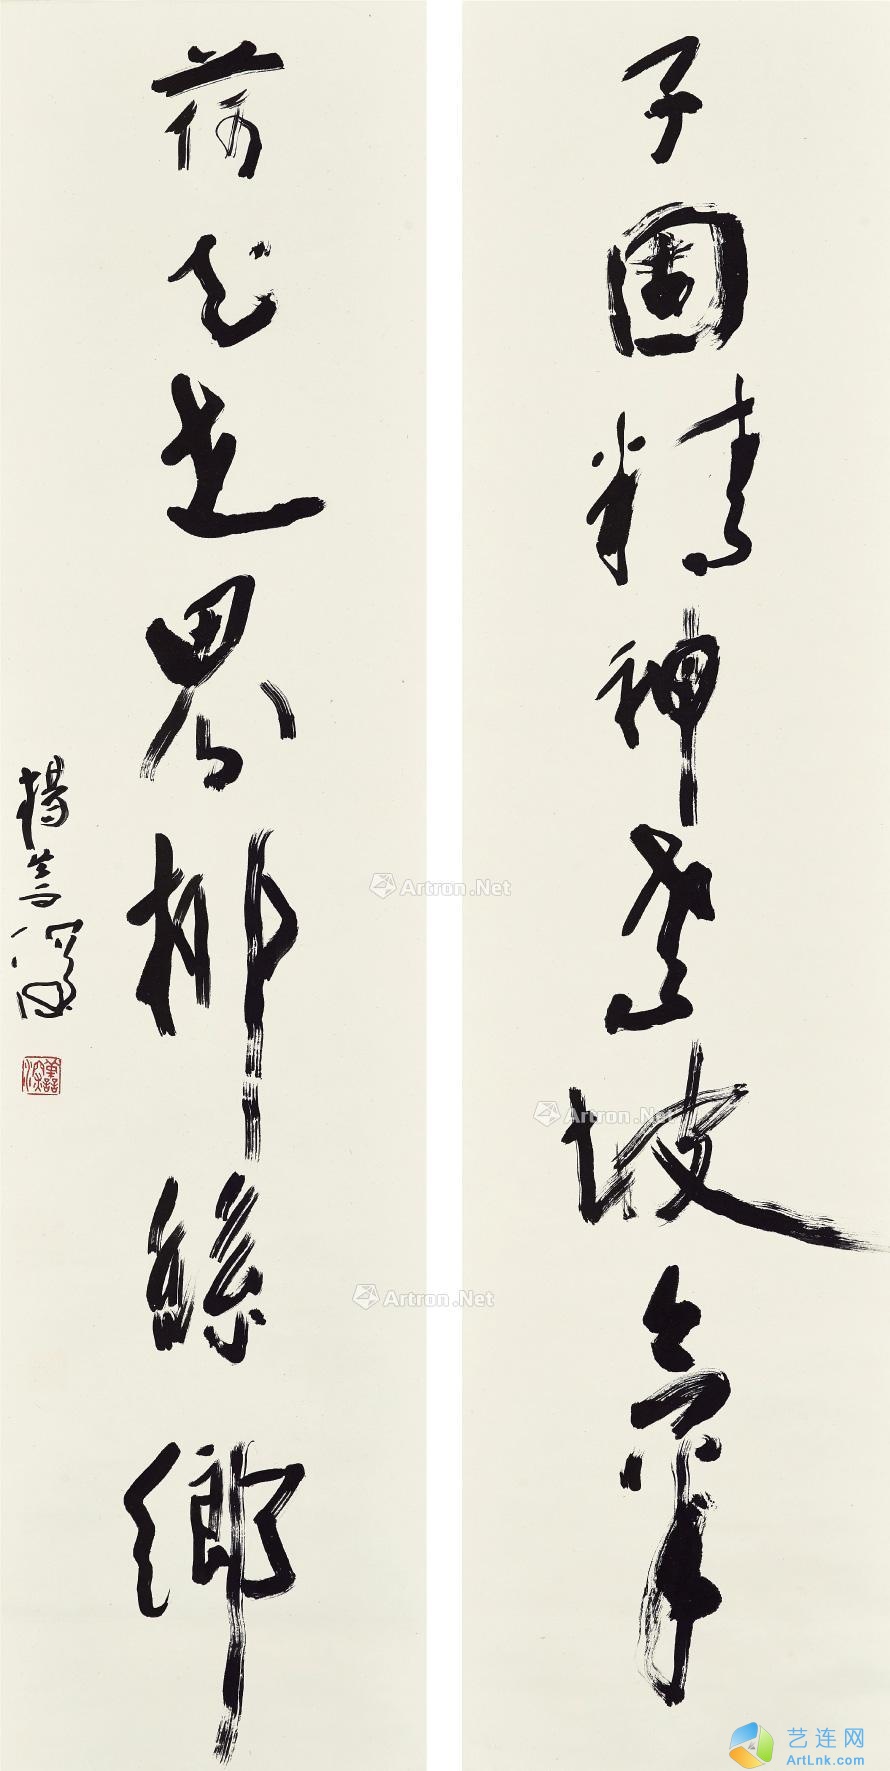 子固精神老坡氣
荷花世界柳絲鄉
楊善深
Artron.Net
Artron.Net
Artron.Net
艺连网
ArtLnk.com